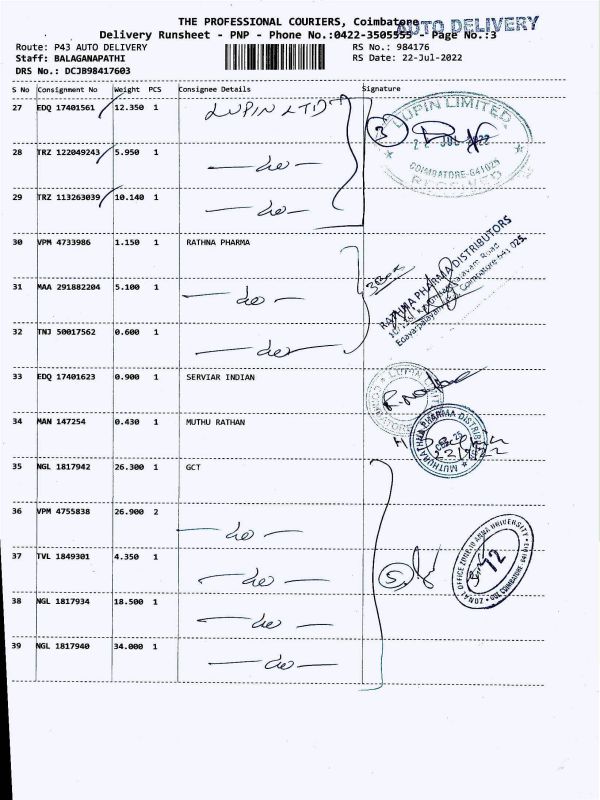 THE PROFESSIONAL COURIERS, Coimbatore
AUTO DELIVERY
Delivery Runsheet - PNP - Phone No.:0422-3505555 - Page No.:3
Route: P43 AUTO DELIVERY
RS No.: 984176
Staff: BALAGANAPATHI
RS Date: 22-Jul-2022
DRS No.: DCJB98417603
S No Consignment No Weight PCS Consignee Details Signature
27 EDQ 17401561 12.350 1 LUPIN LTD
28 TRZ 122049243 5.950 1 — do —
29 TRZ 113263039 10.140 1 — do —
3
LUPIN LIMITED
22 JUL 2022
COIMBATORE-641025
RECEIVED
30 VPM 4733986 1.150 1 RATHNA PHARMA
31 MAA 291882204 5.100 1 — do —
32 TNJ 50017562 0.600 1 — do —
3 Box
RATHNA PHARMA DISTRIBUTORS
Coimbatore-641 025.
33 EDQ 17401623 0.900 1 SERVIAR INDIAN
34 MAN 147254 0.430 1 MUTHU RATHAN
MUTHURATHNA PHARMA DISTRIB
35 NGL 1817942 26.300 1 GCT
36 VPM 4755838 26.900 2 — do —
37 TVL 1849301 4.350 1 — do —
38 NGL 1817934 18.500 1 — do —
39 NGL 1817940 34.000 1 — do —
5
ANNA UNIVERSITY
ZONAL OFFICE